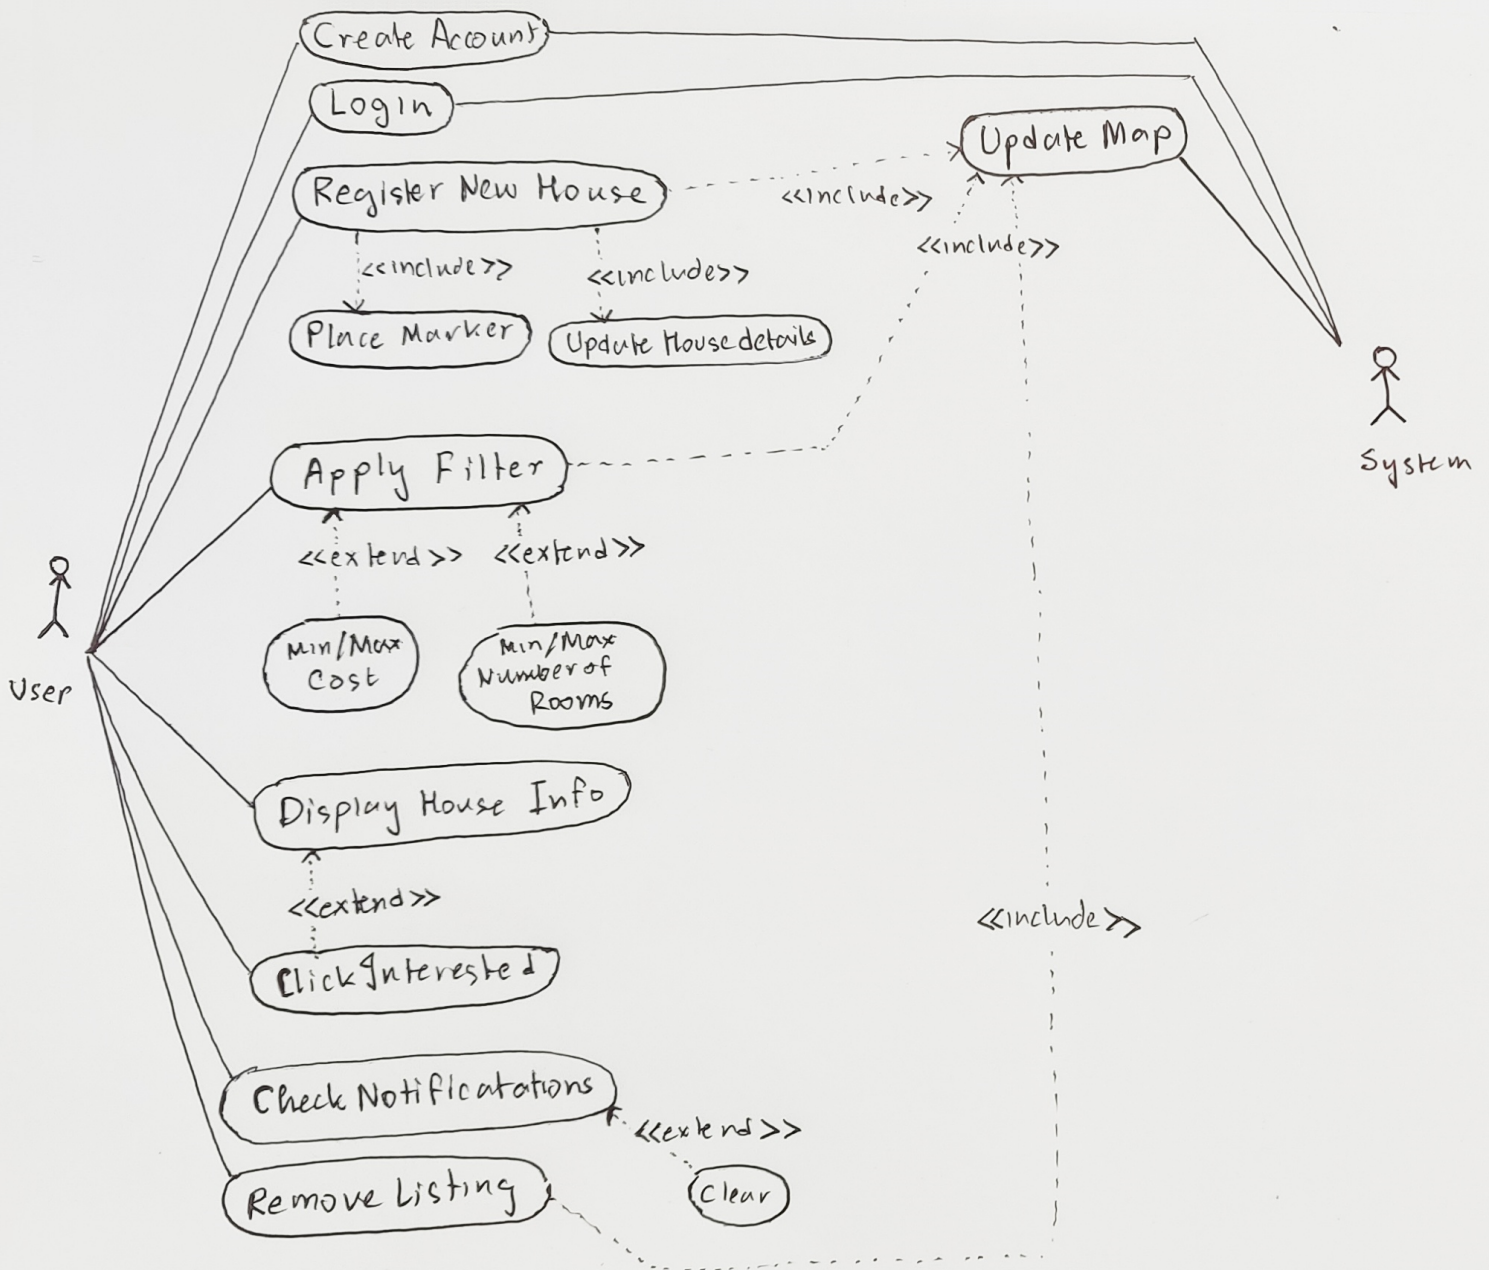 Create Account
Login
Update Map
Register New House
<<include>>
<<include>>
<<include>>
<<include>>
Place Marker
Update House details
System
Apply Filter
<<extend>>
<<extend>>
Min/Max
Cost
Min/Max
Number of
Rooms
User
Display House Info
<<extend>>
<<include>>
Click Interested
Check Notificatations
<<extend>>
Remove Listing
Clear